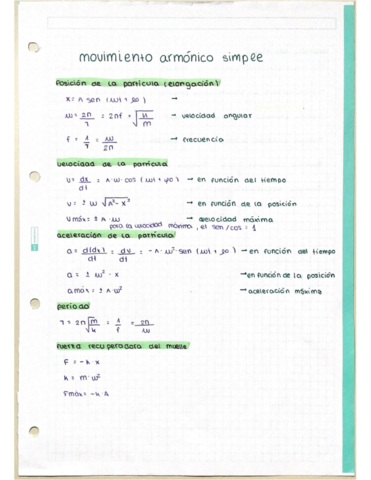 movimiento armónico simple
Posición de la partícula (elongación)
x = A sen (ωt + φ0) →
ω = 2π/T = 2πf = √(k/m) → velocidad angular
f = 1/T = ω/2π → frecuencia
velocidad de la partícula
v = dx/dt = A·ω·cos (ωt + φ0) → en función del tiempo
v = ± ω √(A²-x²) → en función de la posición
vmáx = ± A·ω → velocidad máxima
para la velocidad máxima, el sen/cos = 1
aceleración de la partícula
a = d(dx)/dt = dv/dt = -A·ω² sen (ωt + φ0) → en función del tiempo
a = ± ω²·x → en función de la posición
amáx = ± A·ω² → aceleración máxima
período
T = 2π√(m/k) = 1/f = 2π/ω
fuerza recuperadora del muelle
F = -k·x
k = m·ω²
Fmáx = -k·A